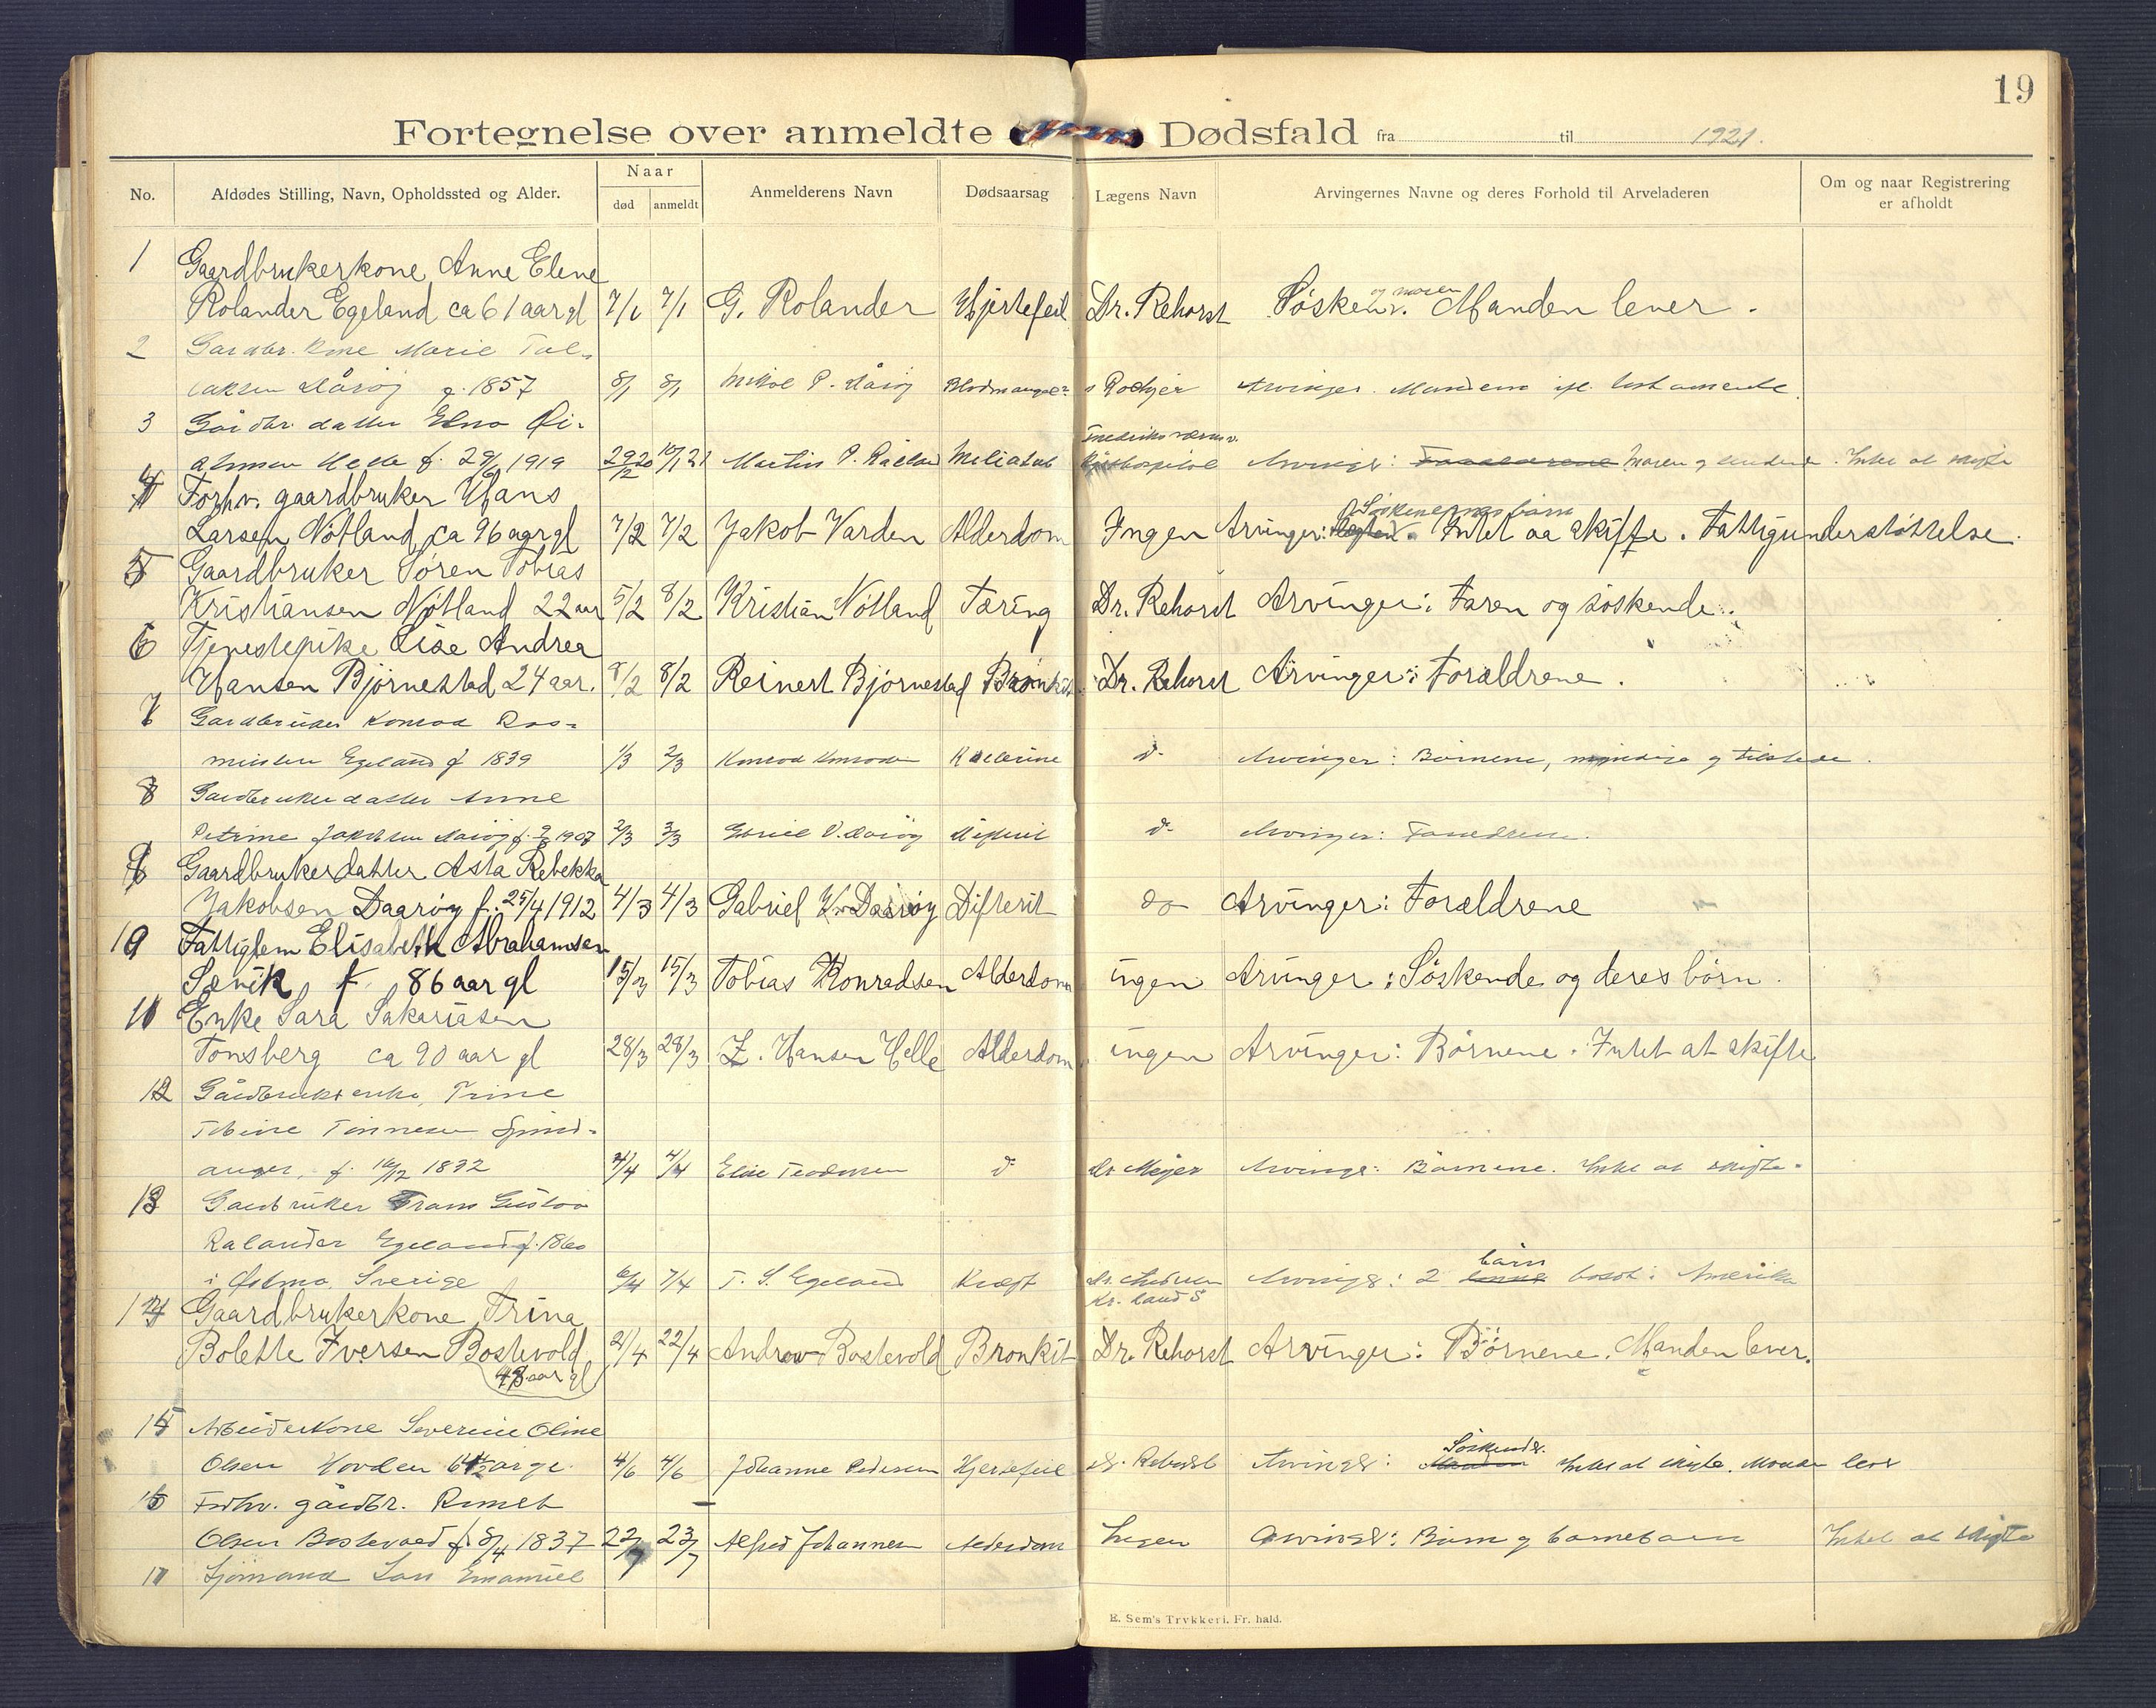 19
Fortegnelse over anmeldte Dødsfald fra til 1921.
No. Afdødes Stilling, Navn, Opholdssted og Alder. Naar død anmeldt Anmelderens Navn Dødsaarsag Lægens Navn Arvingernes Navne og deres Forhold til Arveladeren Om og naar Registrering er afholdt
1 Gaardbrukerkone Anne Elene
og moren
Rolander Egeland ca 61 aar gl 7/1 7/1 G. Rolander Hjertefeil Dr. Rehorst Søsken. Manden lever.
2 Gardbr. kone Marie Tol-
laksen Dårøy f. 1857 8/1 8/1 Mikal P. Dårøy Arvinger. Manden testamente.
3 Gårdbr. datter
Helle f. 29/ 1919 29/12 20 10/1 21 Martin P. Arvinger: Moren og . Intet at skifte
4 Forhv. gaardbruker Hans
Søskenernes børn
Larsen Nötland, ca 96 aar gl 7/2 7/2 Jakob Varden Alderdom Ingen Arvinger: Intet aa skifte. Fattigunderstøttelse.
5 Gaardbruker Søren Tobias
Kristiansen Nötland 22 aar 5/2 8/2 Kristian Nötland Tæring Dr. Rehorst Arvinger: Faren og søskende.
6 Tjenestepike Lise Andrea
Hansen Bjørnestad 24 aar. 8/2 8/2 Reinert Bjørnestad Bronkit Dr. Rehorst Arvinger: Forældrene.
7 Gardbruker Konrad Ras-
musen Egeland f 1839 1/3 2/3 Konrad Konradsen d- Arvinger: Børnene, myndige og tilstede.
8 Gardbrukerdatter Anne
Petrine Jakobsen Dårøy f. 1907 2/3 3/3 Gabriel V. Dårøy Difterit d- Arvinger: Forældrene.
9 Gaardbrukerdatter Asta Rebekka
Jakobsen Daarøy f. 25/4 1912 4/3 4/3 Gabriel V. Daarøy Difterit do Arvinger: Forældrene
10 Fattiglem Elisabeth Abrahamsen
Sævik 86 aar gl 15/3 15/3 Tobias Konradsen Alderdom ingen Arvinger: Søskende og deres börn.
11 Enke Sara Sakariasen
Tonsberg ca 90 aar gl 28/3 28/3 Z. Hansen Helle Alderdom ingen Arvinger: Börnene. Intet at skifte
12 Gårdbrukerenke, Trine
Tobine Tønnesen Spind-
anger, f. 16/12 1832 4/4 4/4 Elise Teodorsen d- Dr Meyer Arvinger: Børnene. Intet at skifte.
13 Gardbruker Frans Gustav
Rolander Egeland f. 1860
børn
i Sverige 6/4 7/4 T. S. Egeland Kræft Dr. Arvinger: 2 bosat i Amerika
Kr. sand S
14 Gaardbrukerkone Trina
Bolette Iversen Bostevold 21/4 22/4 Andrew Bostevold Bronkit Dr. Rehorst Arvinger: Børnene. Manden lever.
48 aar gl
15 Arbeiderkone Severine Oline
Søskende.
Olsen Hovden 64 år gl. 4/6 4/6 Johanne Pedersen Hjertefeil dr. Rehorst Arvinger: Manden Intet at skifte. Manden lever
16 Forhv. gårdbr. Reinert
Olsen Bostevold f. 8/4 1837 22/7 23/7 Alfred Johannesen Alderdom Ingen Arvinger: Børn og barnebarn Intet at skifte
17 Sjømand Lars Emanuel
E. Sem's Trykkeri. Fr. hald.